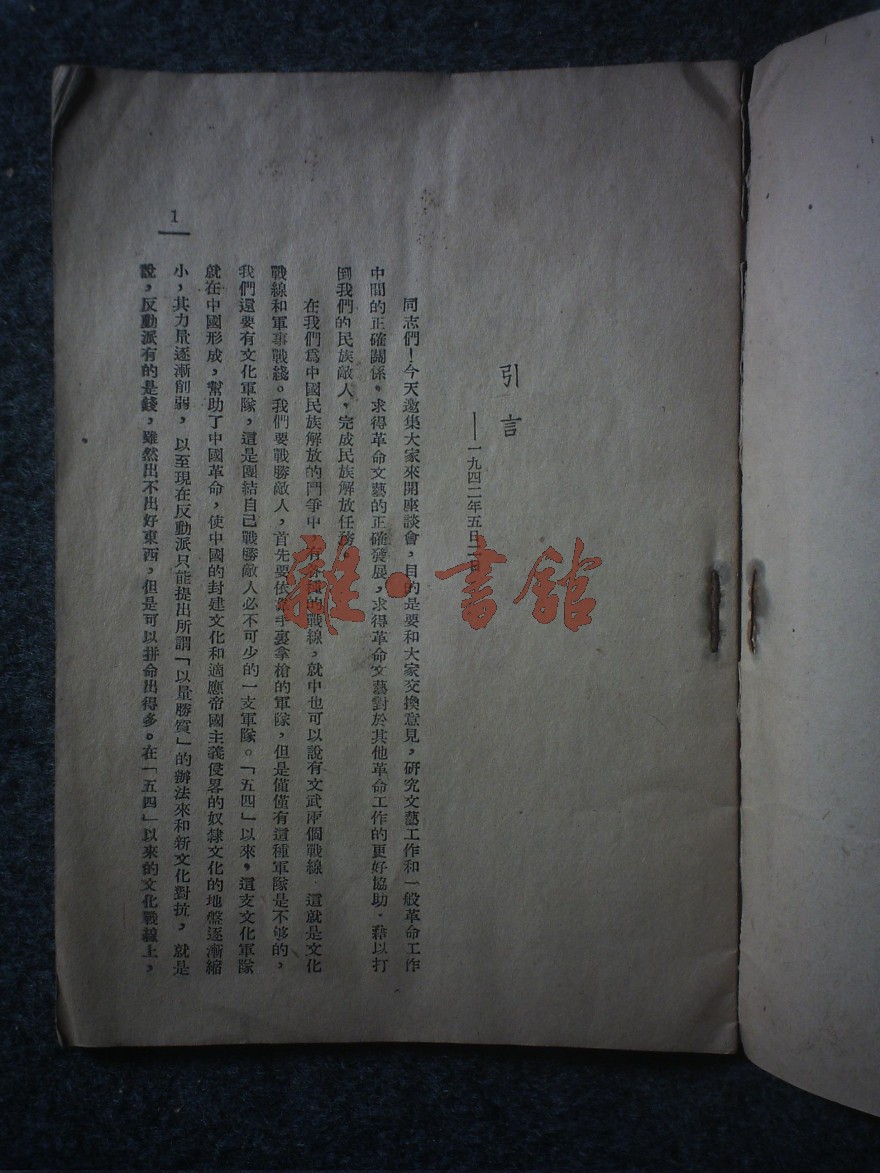 引言
——一九四二年五日二日
同志們！今天邀集大家來開座談會，目的是要和大家交換意見，研究文藝工作和一般革命工作
中間的正確關係，求得革命文藝的正確發展，求得革命文藝對於其他革命工作的更好協助，藉以打
倒我們的民族敵人，完成民族解放任務。
在我們爲中國民族解放的鬥爭中，有各種的戰線，就中也可以說有文武兩個戰線 這就是文化
戰線和軍事戰綫。我們要戰勝敵人，首先要依靠手裏拿槍的軍隊，但是僅僅有這種軍隊是不够的，
我們還要有文化軍隊，這是團結自己戰勝敵人必不可少的一支軍隊。「五四」以來，這支文化軍隊
就在中國形成，幫助了中國革命，使中國的封建文化和適應帝國主義侵畧的奴隸文化的地盤逐漸縮
小，其力量逐漸削弱，以至現在反動派只能提出所謂「以量勝質」的辦法來和新文化對抗，就是
說，反動派有的是錢，雖然出不出好東西，但是可以拼命出得多。在「五四」以來的文化戰線上，
1
雜·書館